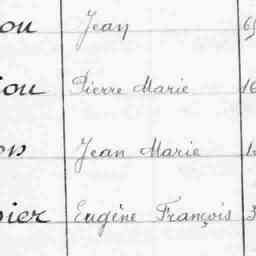 ou Jean 6
ou Pierre Marie 16
on Jean Marie
ier Eugène François 3